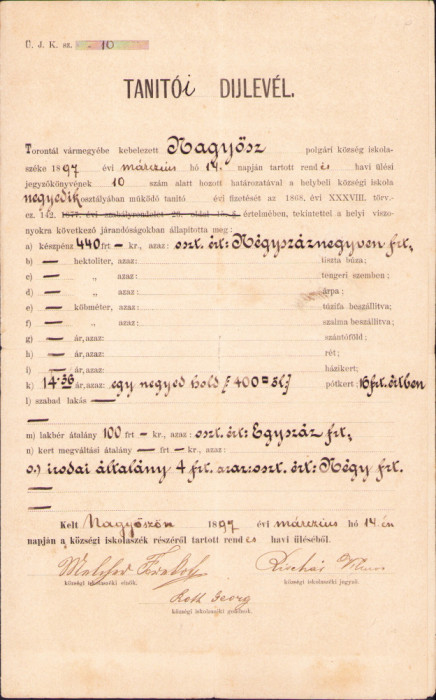 Ü. J. K. sz. 10
TANITÓi DIJLEVÉL.
Torontál vármegyébe kebelezett Nagyősz polgári község iskola-
széke 1897 évi márczius hó 14. napján tartott rendes havi ülési
jegyzőkönyvének 10 szám alatt hozott határozatával a helybeli községi iskola
negyedik osztályában működő tanító évi fizetését az 1868. évi XXXVIII. törv.-
cz. 142. 1877. évi szabályrendelet 20. oldal 18. § értelmében, tekintettel a helyi viszo-
nyokra következő járandóságokban állapította meg:
a) készpénz 440 frt – kr., azaz: oszt. ért: Négyszáznegyven frt,
b) — hektoliter, azaz: tiszta búza;
c) — „ azaz: tengeri szemben;
d) — „ azaz: árpa;
e) — köbméter, azaz: tűzifa beszállítva;
f) — „ azaz: szalma beszállítva;
g) — ár, azaz: szántóföld;
h) — ár, azaz: rét;
i) — ár, azaz: házikert;
k) 14.36 ár, azaz: egy negyed hold [400 □ öl] pótkert; 16 frt. értben
l) szabad lakás —
—
m) lakbér átalány 100 frt – kr., azaz: oszt. ért: Egyszáz frt,
n) kert megváltási átalány — frt – kr., azaz: —
o.) irodai általány 4 frt. azaz: oszt. ért: Négy frt.
—
—
Kelt Nagyőszön 1897 évi márczius hó 14-én
napján a községi iskolaszék részéről tartott rendes havi üléséből.
Melcher
községi iskolaszéki elnök. községi iskolaszéki jegyző.
Roth Georg
községi iskolaszéki gondnok.